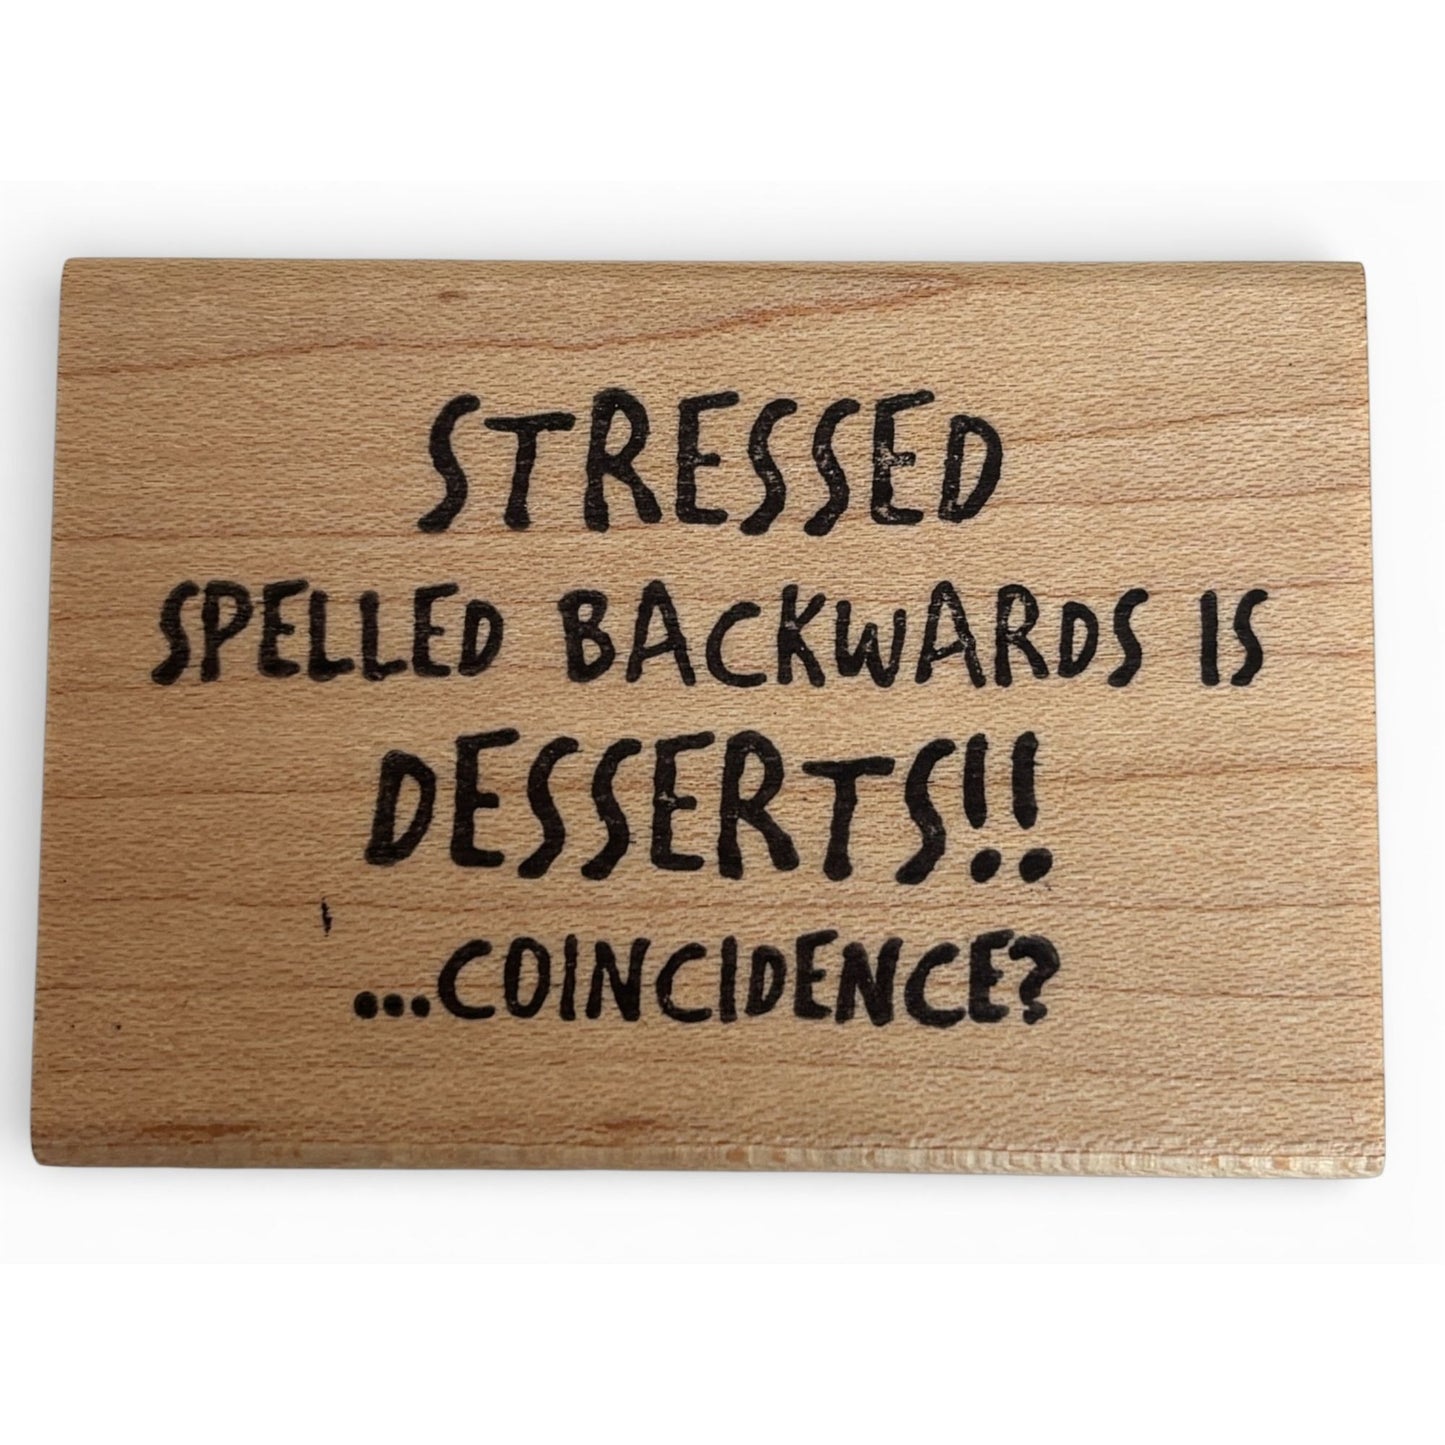 STRESSED
SPELLED BACKWARDS IS
DESSERTS!!
...COINCIDENCE?